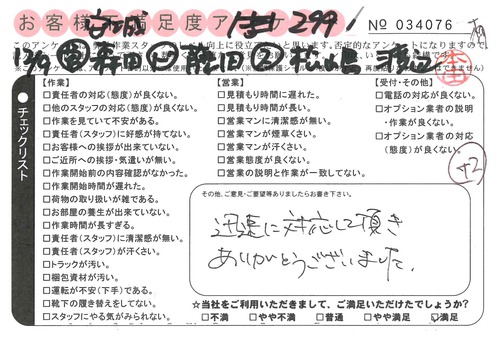 お客様 満足度ア
No 034076
宮城
299
このアンケートは
【作業】
□責任者の対応(態度)が良くない。
□他のスタッフの対応(態度)が良くない。
□作業を見ていて不安がある。
□責任者(スタッフ)に好感が持てない。
□お客様への挨拶が出来ていない。
□ご近所への挨拶・気遣いが無い。
□作業開始前の内容確認がなかった。
□作業開始時間が遅れた。
□荷物の取り扱いが雑である。
□お部屋の養生が出来ていない。
□作業時間が長すぎる。
□責任者(スタッフ)に清潔感が無い。
□責任者(スタッフ)が汗くさい。
□トラックが汚い。
□梱包資材が汚い。
□運転が不安(下手)である。
□靴下の履き替えをしてない。
□スタッフにやる気がみられない。
【営業】
□見積もり時間に遅れた。
□見積もり時間が長い。
□営業マンに清潔感が無い。
□営業マンが煙草くさい。
□営業マンが汗くさい。
□営業態度が良くない。
□営業の説明と作業が一致してない。
【受付・その他】
□電話の対応が良くない。
□オプション業者の説明
・作業が良くない。
□オプション業者の対応
(態度)が良くない。
+2
●チェックリスト
その他、ご意見・ご要望等ありましたらお書き下さい。
迅速に対応して頂き
ありがとうございました。
☆当社をご利用いただきまして、ご満足いただけたでしょうか?
□不満 □やや不満 □普通 □やや満足 ☑満足